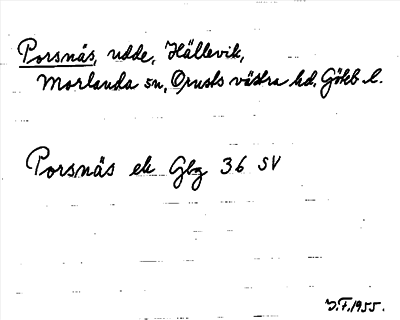 Porsnäs, udde, Hällevik,
Morlanda sn, Orusts västra hd, Gökb l.
Porsnäs ek Gbg 36 SV
J.F. 1955.